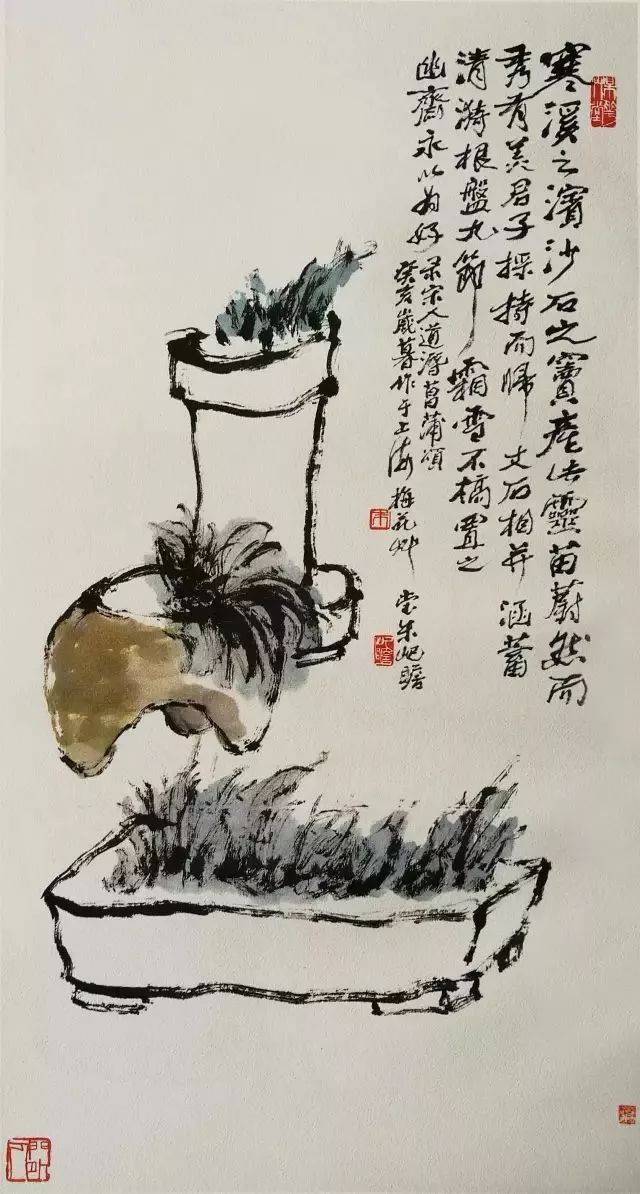 寒溪之濱沙石之竇產此靈苗蔚然而
秀有美君子採持而歸文石相并涵蓄
清漪根盤九節霜雪不槁置之
幽齋永以為好
录宋人道潛菖蒲頌
癸亥歲暮作于上海梅花艸堂朱屺瞻
朱
屺瞻